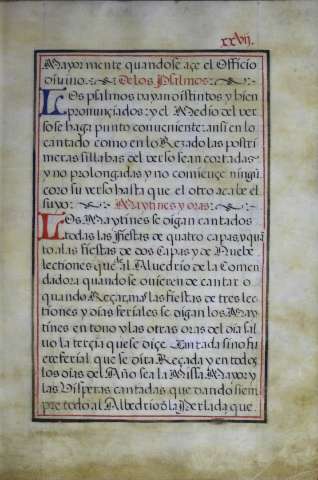 xxvij.
Mayormente quando se açe el Officio
diuino. De los Psalmos.
Los psalmos vayan distintos y bien
pronunçiados: y el Medio del ver
so se haga punto conueniente: ansi en lo
cantado como en lo Rezado las postri
meras sillabas del verso sean cortadas
y no prolongadas y no comiençe ningũ
coro su verso hasta que el otro acabe el
suyo. Maytines y oras.
Los Maytines se digan cantados
todas las fiestas de quatro capas, y quã
to a las fiestas de dos Capas y de Nuebe
lectiones que al Aluedrio de la Comen
dadora quando se ouieren de cantar o
quando Reçar, mas las fiestas de tres lec
tiones y dias feriales se digan los May
tines en tono y las otras oras del dia sal
uo la terçia que se diçe Cantada sino fu
ere ferial que se dira Reçada y en todos
los dias del Año sea la Missa Mayor y
las Visperas cantadas, que dando siem
pre todo al Albedrio đ la Perlada, que